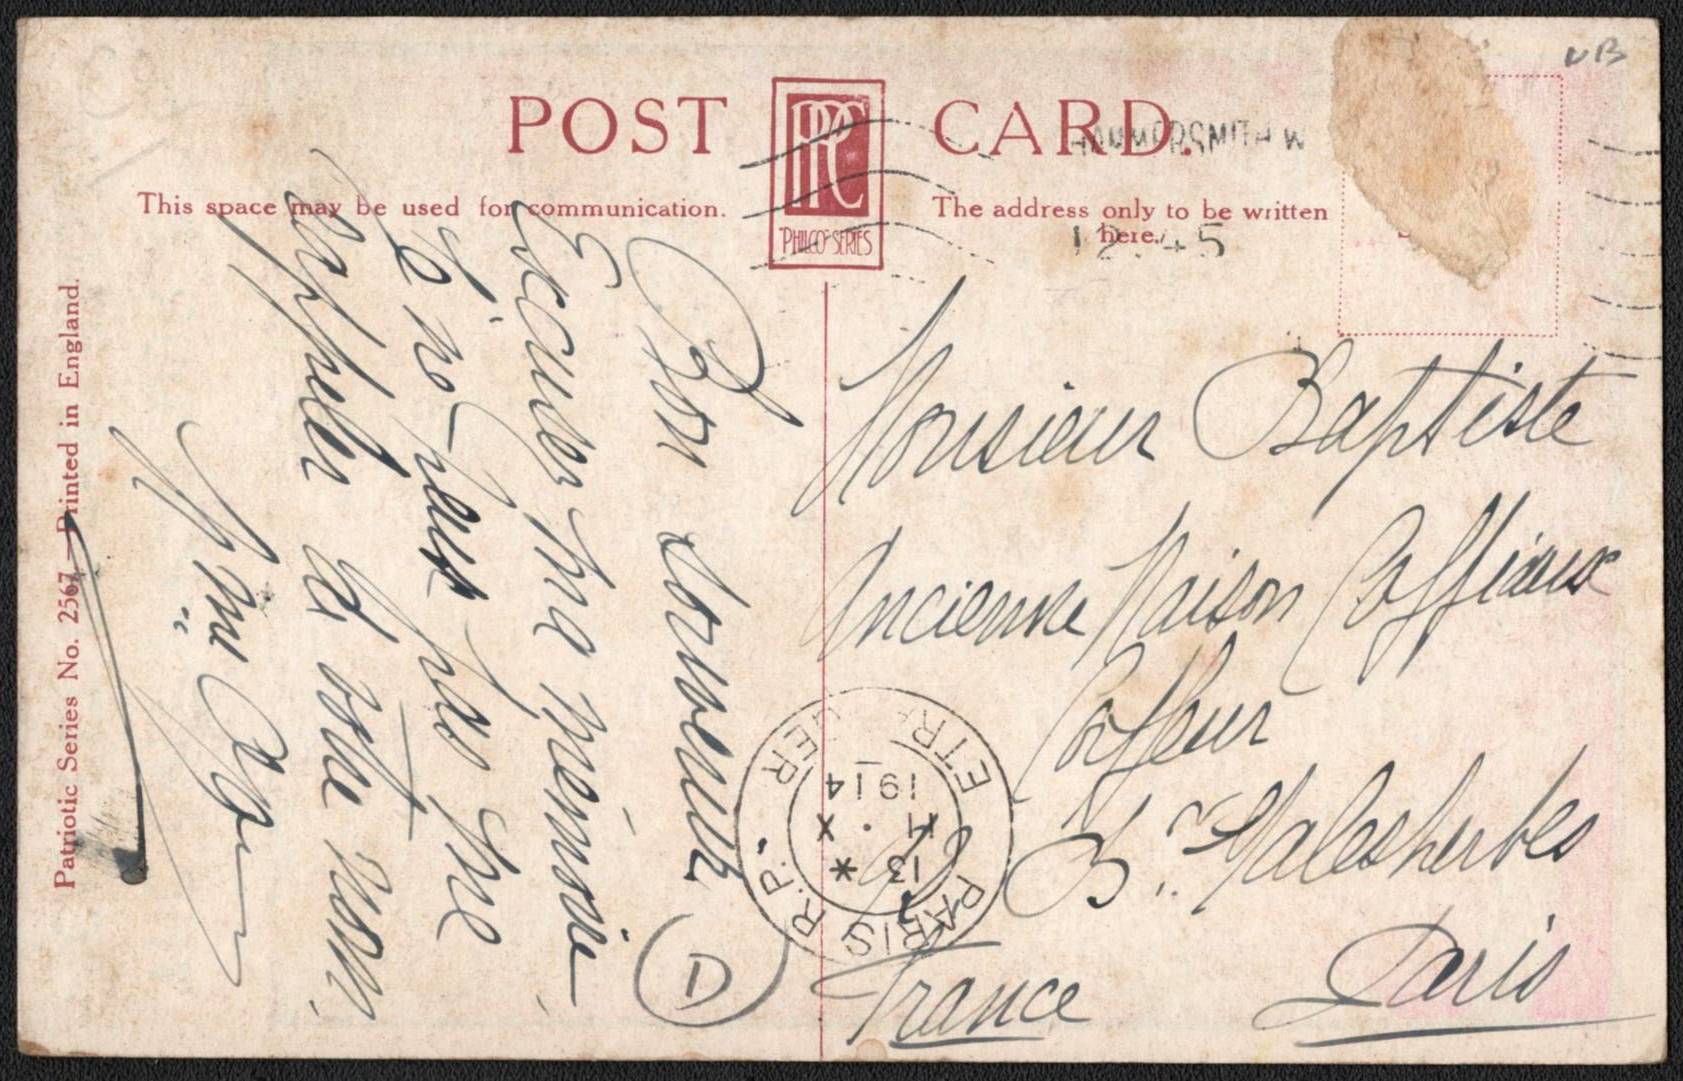 POST CARD.
PPC
PHILCO SERIES
This space may be used for communication.
The address only to be written
here.
HAMMERSMITH W
12.45
Patriotic Series No. 2567 — Printed in England.
Bon Souvenir
Excuser ma mémoire
Je ne peux pas me
rappeler de votre nom
Monsieur Baptiste
Ancienne Maison Coffiaux
Coiffeur
Bd Malesherbes
Paris
France
PARIS R.P. ETRANGER
13 * 11 . X 1914
1